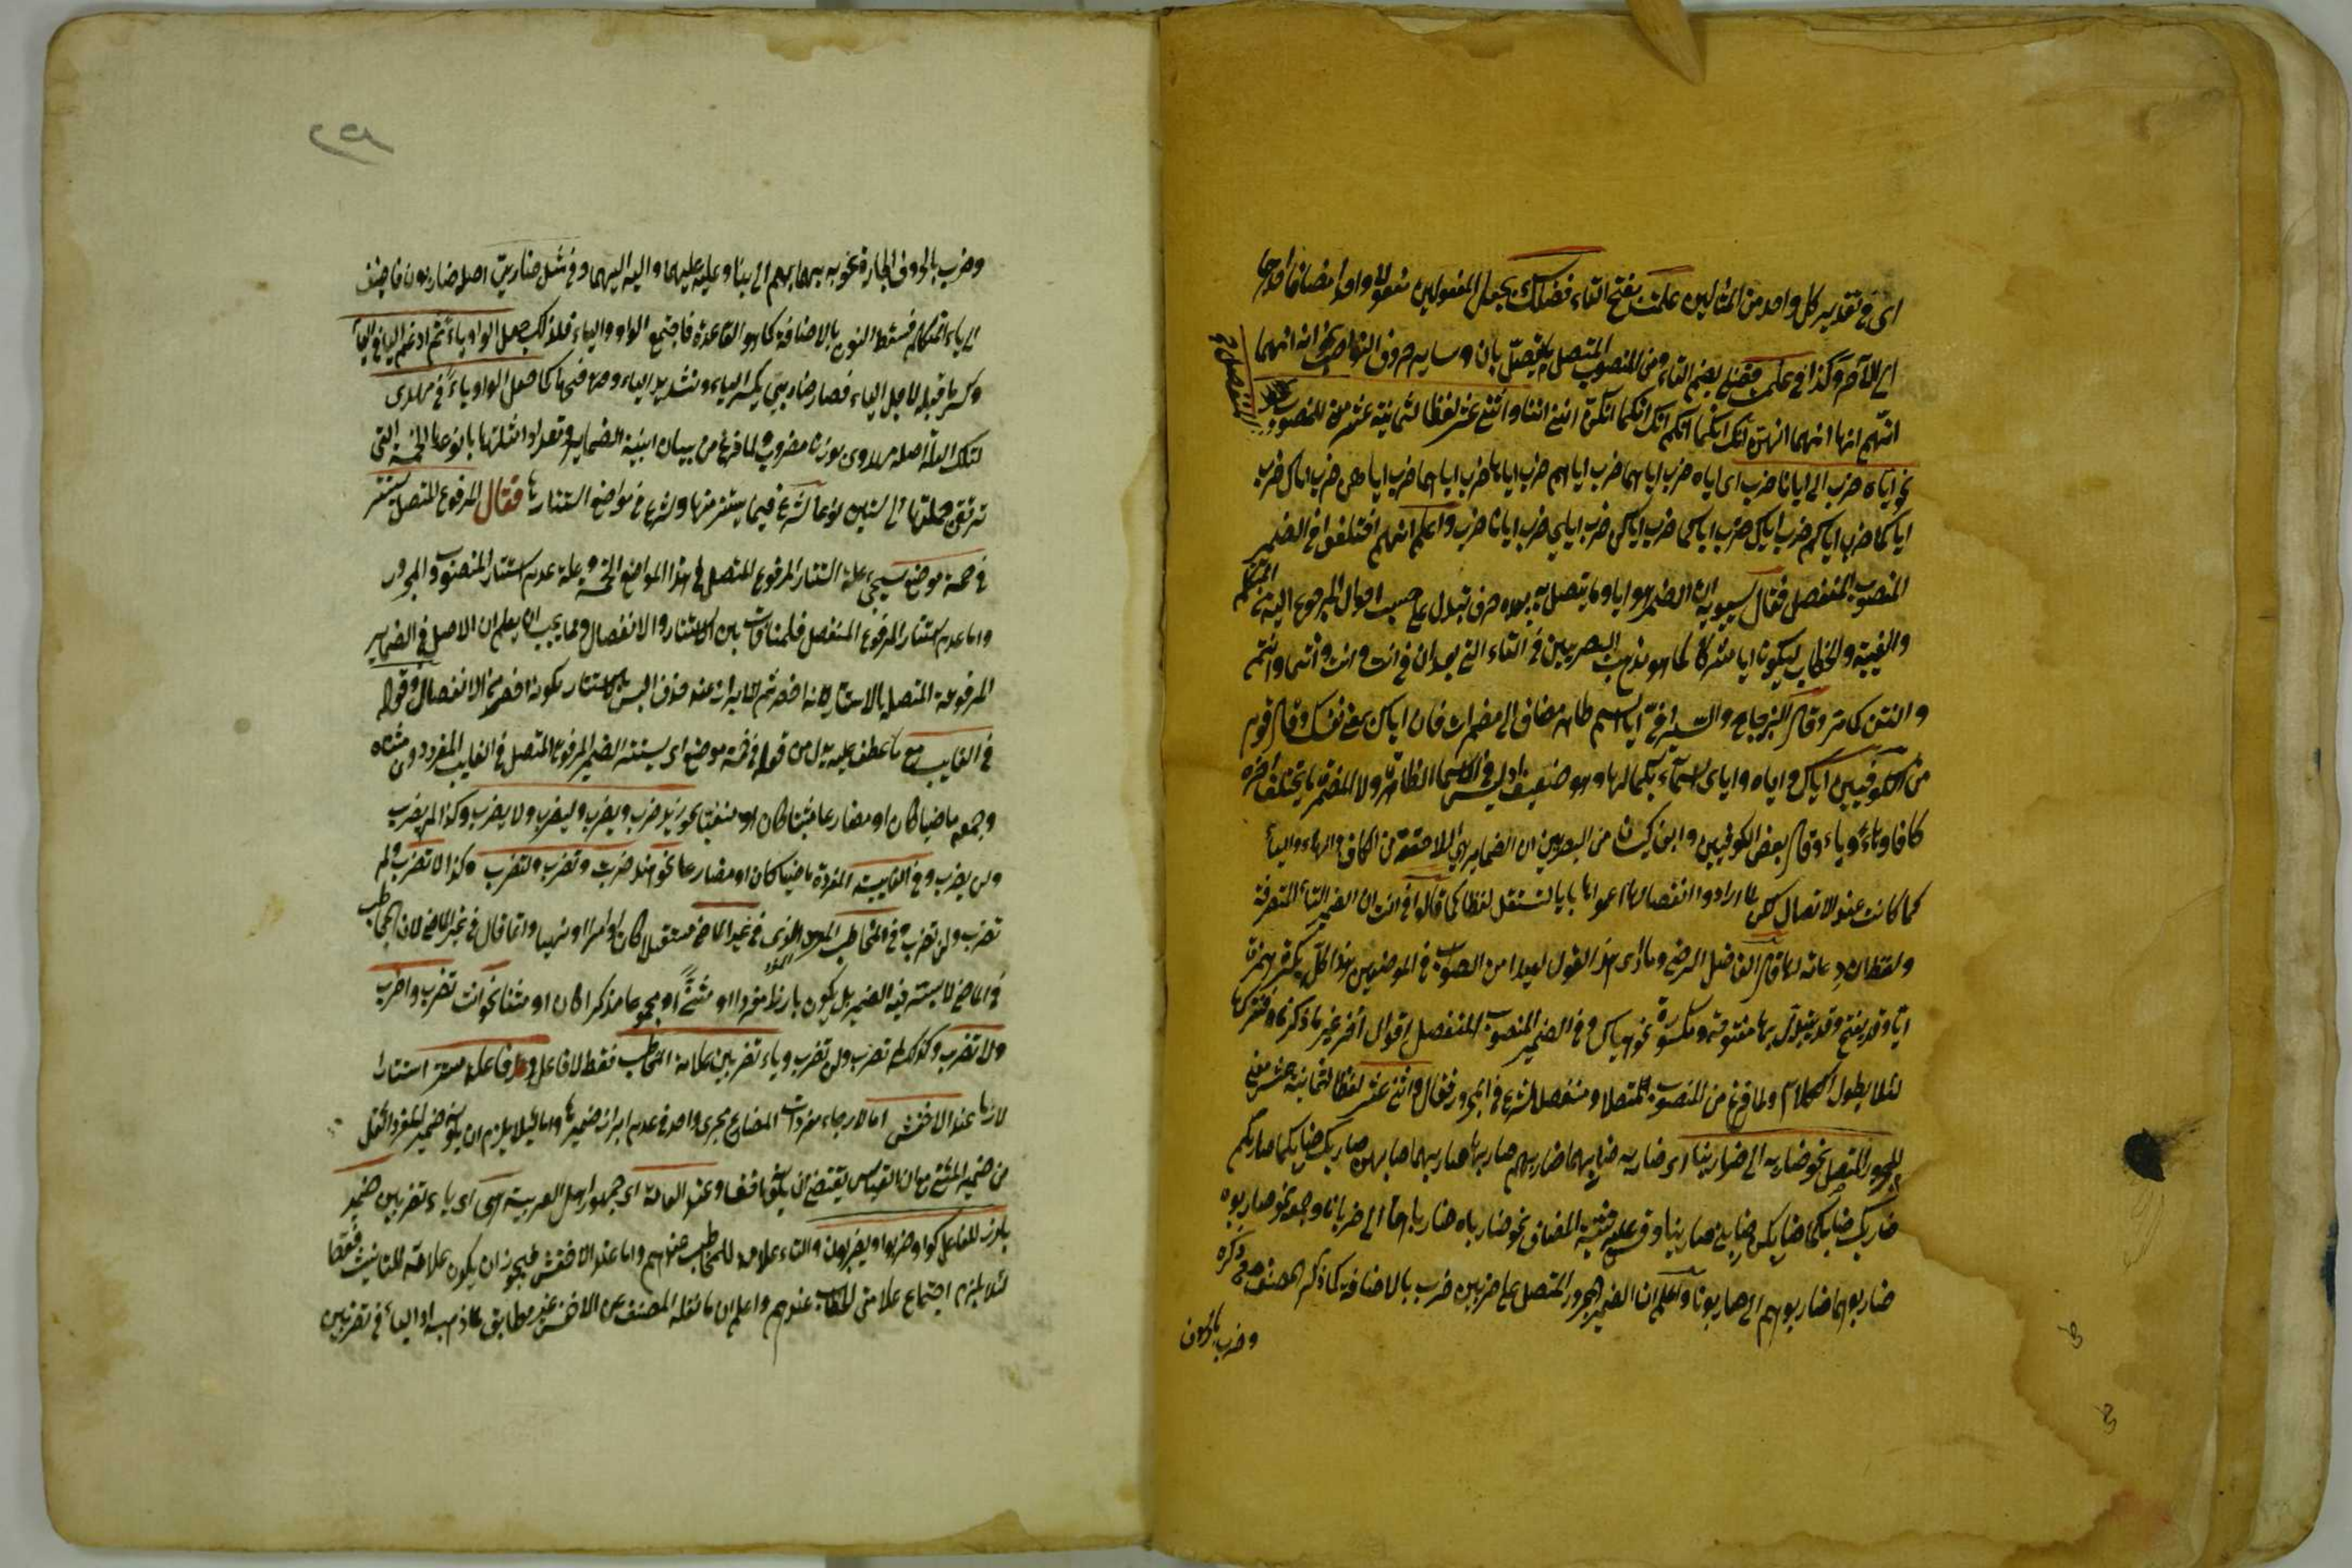 اى فى تقدير كل واحد من المثالين علمت بفتح التاء فضلك بجعل المفعولين مفعولا واحدا مضافا احدهما
الى الآخر وكذا فى علمت فضلى بضم التاء ومن المنصوب المتصل ما يتصل بان وسائر حروف النواصب نحو انه انهما
انهم انها انهما انهن انك انكما انكم انك انكما انكن اننى اننا واثنى عشر لفظا لثمانية عشر معنى للمنصوب
المنفصل
نحو اياه ضرب الى ايانا ضرب اى اياه ضرب اياهما ضرب اياهم ضرب اياها ضرب اياهما ضرب اياهن ضرب اياك ضرب
اياكما ضرب اياكم ضرب اياك ضرب اياكما ضرب اياكن ضرب اياى ضرب ايانا ضرب واعلم انهم اختلفوا فى الضمير
المنصوب المنفصل فقال سيبويه ان الضمير هو ايا وما يتصل به بعده حرف تبدل على حسب احوال المرجوع اليه من التكلم
والغيبة والخطاب ليكون ايا مشتركا كما هو مذهب البصريين فى التاء التى بعد ان فى انت وانت وانتما وانتم
وانتن كما مر وقال الزجاج والسيرافى ايا اسم ظاهر مضاف الى مضمرات فان اياك بمعنى نفسك وقال قوم
من الكوفيين اياك واياه واياى اسماء بكمالها وهو ضعيف اذ ليس فى الاسماء الظاهرة ولا المضمرة ما يختلف آخره
كافا وهاء وياء وقال بعض الكوفيين وابن كيسان من البصريين ان الضماير هى اللاحقة من الكاف والهاء والياء
كما كانت عند الاتصال لكن لما ارادوا انفصالها دعموها بايا لتستقل لفظا كما قالوا فى انت ان الضمير التاء المتصرفة
ولفظ ان دعامة لها قال الفاضل الرضى وما ارى هذا القول بعيدا من الصواب فى الموضعين هذا كله بكسر همزة
ايا وقد يفتح وقد يبدل بهاء مفتوحة ومكسورة نحو هياك وفى الضمير المنصوب المنفصل اقوال آخر غير ما ذكرنا فتركناها
لئلا يطول الكلام ولما فرغ من المنصوب متصلا ومنفصلا شرع فى المجرور فقال واثنى عشر لفظا لثمانية عشر معنى
للمجرور المتصل نحو ضاربه الى ضاربنا اى ضاربه ضاربهما ضاربهم ضاربها ضاربهما ضاربهن ضاربك ضاربكما ضاربكم
ضاربك ضاربكما ضاربكن ضاربى ضاربنا وقس عليه تثنية المضاف نحو ضارباه ضارباهما الى ضاربانا وجمعه نحو ضاربوه
ضاربوهما ضاربوهم الى ضاربونا واعلم ان الضمير المجرور المتصل على ضربين ضرب بالاضافة كما ذكره المصنف فى ذكره
وضرب بالحروف
وضرب بالحروف الجارة نحو به بهما بهم الى بنا وعليه عليهما واليه اليهما وفى مثل ضاربى اصله ضاربون فاضيف
الى ياء المتكلم فسقط النون بالاضافة كما هو القاعدة فاجتمع الواو والياء فلذلك جعل الواو ياء ثم ادغم الياء فى الياء
وكسر ما قبله لاجل الياء فصار ضاربى بكسر الباء وتشديد الياء وفتحها كما جعل الواو ياء فى مهدى
لتلك العلة اصله مهدوى بوزن مضروب ولما فرغ من بيان ابنية الضماير وتعداد امثلتها بانواعها الخمسة التى
ترتقى جملتها الى ستين نوعا شرع فيما يستتر منها وشرع فى مواضع استتارها فقال المرفوع المتصل يستتر
فى خمسة موضع سيجىء علة استتار المرفوع المتصل فى هذه المواضع الخمسة وعلة عدم استتار المنصوب والمجرور
واما عدم استتار المرفوع المنفصل فلمنافات بين الاستتار والانفصال ومما يجب ان يعلم ان الاصل فى الضماير
المرفوعة المتصلة بالاستتار لانه اخصر ثم الابراز عند خوف اللبس بالاستتار لكونه اخصر من الانفصال وقوله
فى الغايب مع ما عطف عليه بدل من قوله فى خمسة موضع اى يستتر الضمير المرفوع المتصل فى الغايب المفرد دون مثناه
وجمعه ماضيا كان او مضارعا مثبتا كان او منفيا نحو زيد ضرب ويضرب وليضرب ولا يضرب وكذا لم يضرب
ولن يضرب وفى الغايبة المفردة ماضيا كان او مضارعا نحو هند ضربت وتضرب ولتضرب وكذا لا تضرب ولم
تضرب ولن تضرب وفى المخاطب المفرد الذى فى غير الماضى مستقبلا كان او امرا او نهيا وانما قال فى غير الماضى لان المخاطب
فى الماضى لا يستتر فيه الضمير بل يكون بارزا مفردا او مثنى او مجموعا مذكرا كان او مؤنثا نحو انت تضرب واضرب
ولا تضرب وكذلك لم تضرب ولن تضرب وياء تضربين علامة الخطاب فقط لا فاعل وفاعله مستتر استتارا
لازما عند الاخفش اما لاجراء مفردات المضارع مجرى واحد فى عدم ابراز ضميرها واما لئلا يلزم ان يكون ضمير المفرد اثقل
من ضمير المثنى مع ان القياس يقتضى ان يكون اخف وعند العامة اى جمهور اهل العربية هى اى ياء تضربين ضمير
بارز للفاعل كواو ضربوا ويضربون والتاء علامة للمخاطب عندهم واما عند الاخفش فيجوز ان يكون علامة للتانيث فقط
لئلا يلزم اجتماع علامتى الخطاب عندهم واعلم ان ما نقله المصنف عن الاخفش غير مطابق لما ذهب اذ الياء فى تضربين